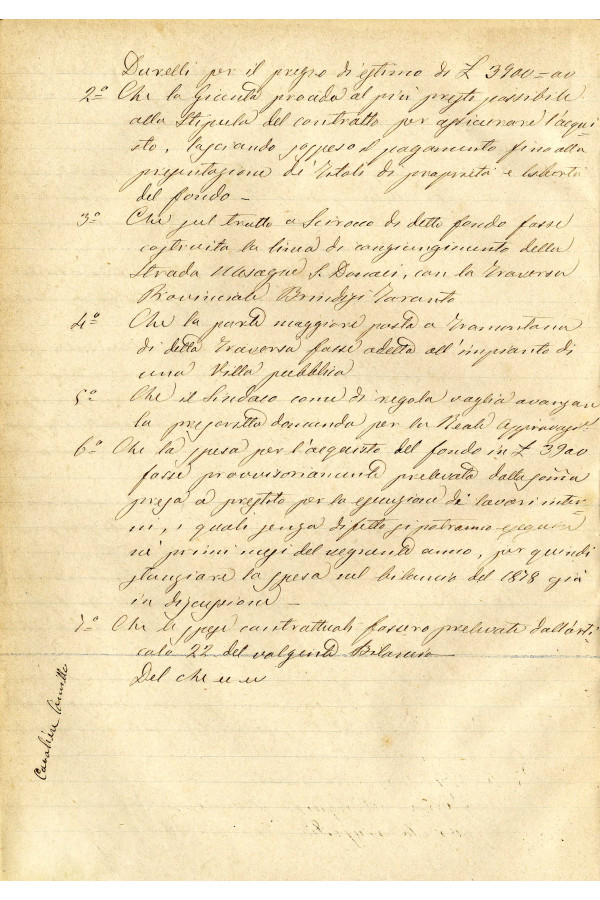 Durelli per il prezzo di estimo di £ 3900=00
2º Che la Giunta proceda al più presto possibile
alla stipula del contratto per assicurare l'acqui
sto, lasciando sospeso il pagamento fino alla
presentazione de' titoli di proprietà e libertà
del fondo —
3º Che sul tratto a Scirocco di detto fondo fosse
costruita la linea di congiungimento della
Strada Mesagne S. Donaci, con la Traversa
Provinciale Brindisi Taranto
4º Che la parte maggiore posta a Tramontana
di detta Traversa fosse adetta all'impianto di
una Villa pubblica
5º Che il Sindaco come di regola voglia avanzare
la prescritta domanda per la Reale
6º Che la spesa per l'acquisto del fondo in £ 3900
fosse provvisoriamente prelevata dalla somma
presa a prestito per la esecuzione de' lavori inter-
ni, i quali senza difetto si potranno eseguire
ne' primi mesi del vegnente anno, per quindi
stanziare la spesa nel bilancio del 1878 già
in discussione —
7º Che le spese contrattuali fossero prelevate dall'arti
colo 22 del volgente Bilancio
Del che
Cavaliere